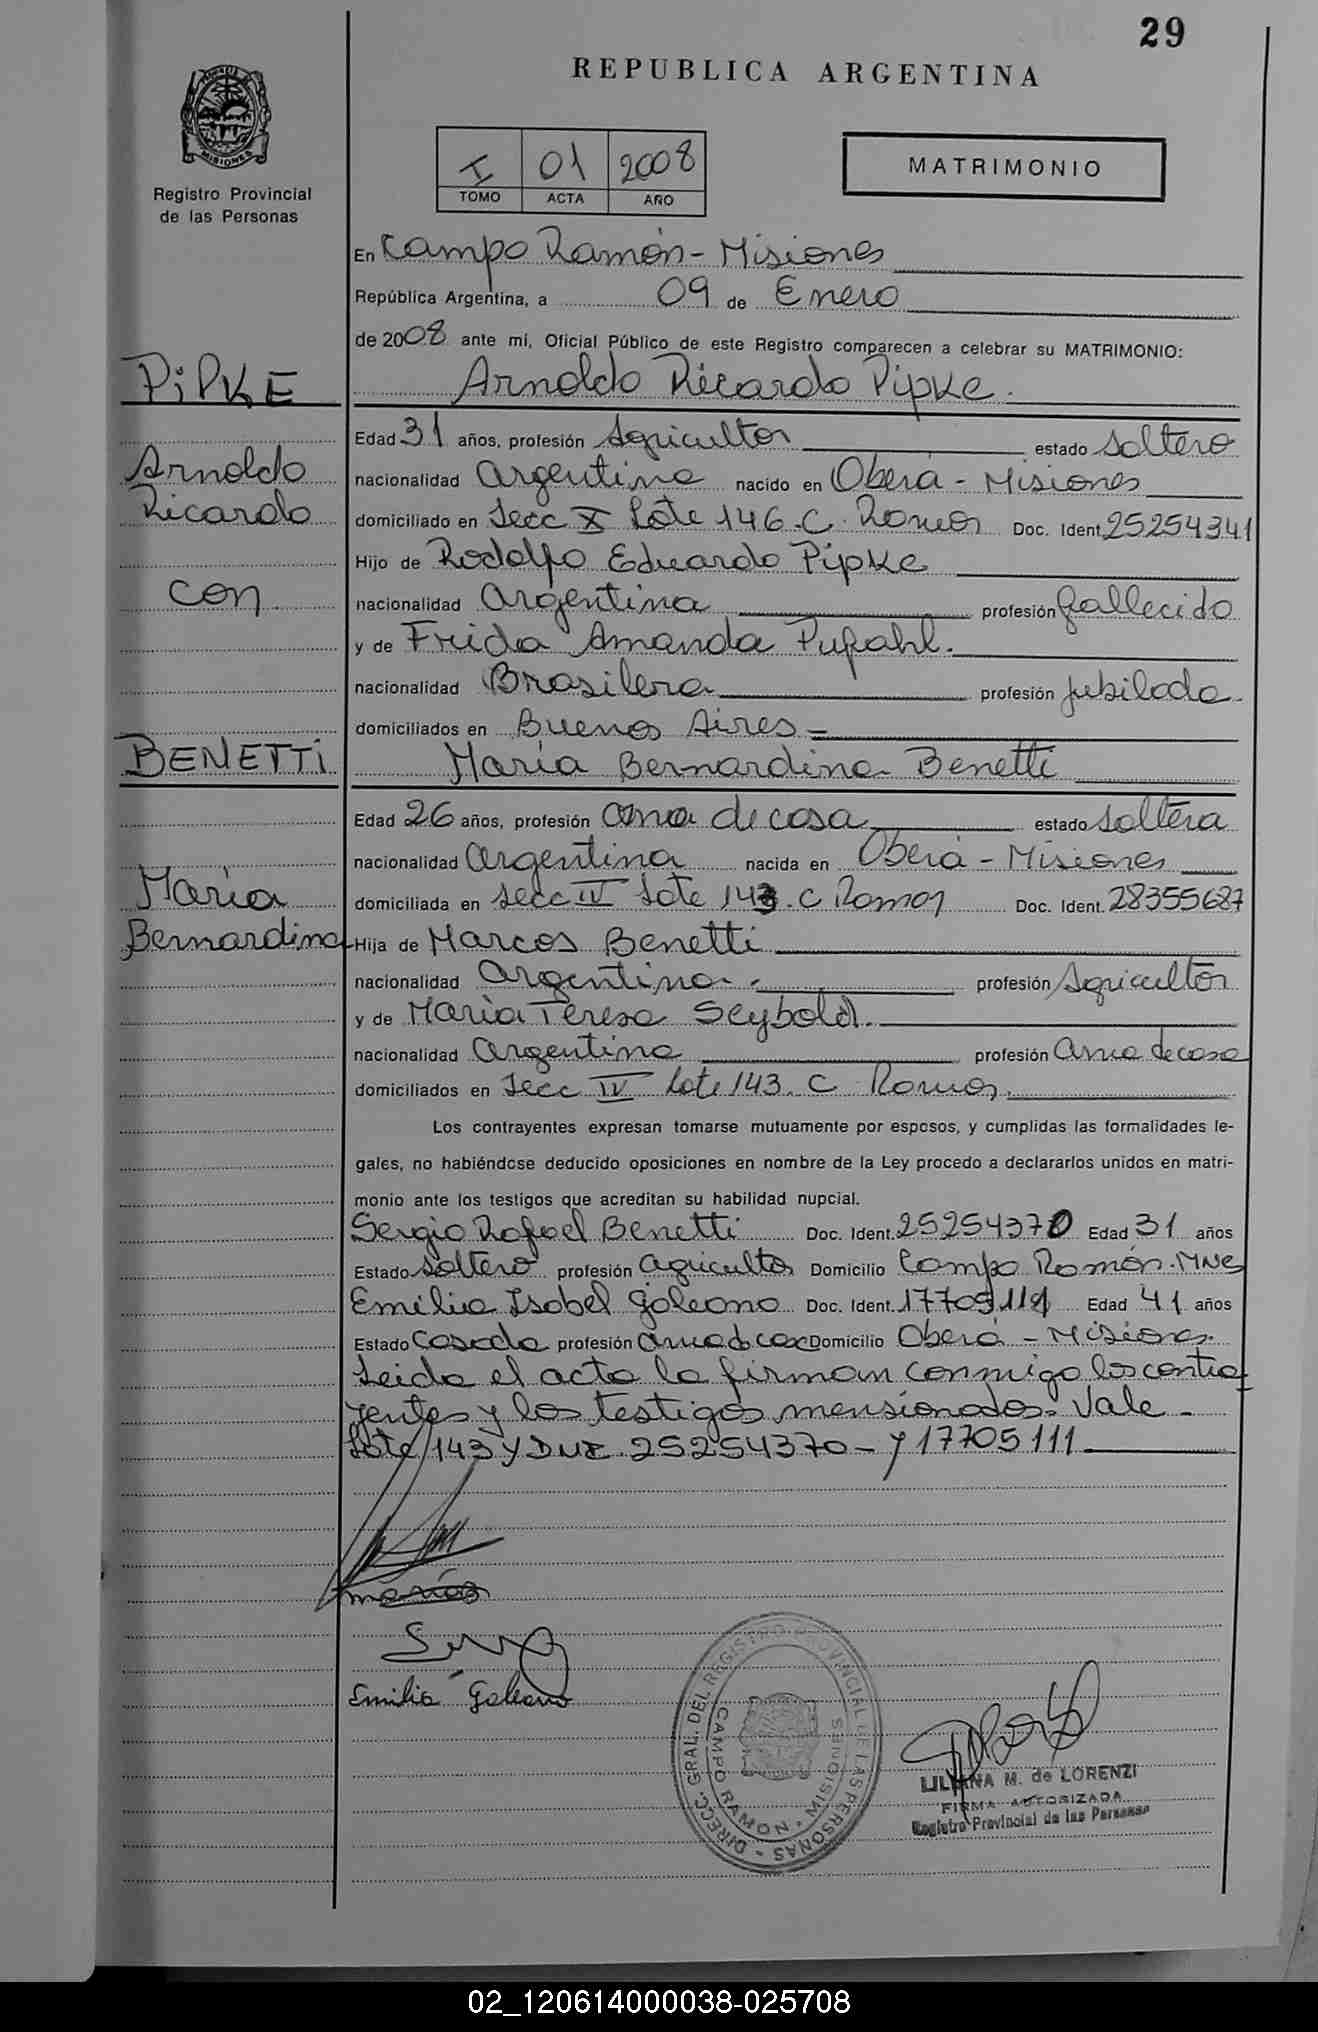 29
REPUBLICA ARGENTINA
MISIONES
Registro Provincial
de las Personas
I 01 2008
TOMO ACTA AÑO
MATRIMONIO
En Campo Ramón - Misiones
República Argentina, a 09 de Enero
de 2008 ante mi, Oficial Público de este Registro comparecen a celebrar su MATRIMONIO:
PiPKE
Arnoldo Ricardo Pipke.
Edad 31 años, profesión Agricultor estado Soltero
Arnoldo
nacionalidad Argentina nacido en Oberá - Misiones
Ricardo
domiciliado en Secc X Lote 146. C. Ramón Doc. Ident. 25254341
Hijo de Rodolfo Eduardo Pipke
con
nacionalidad Argentina profesión fallecido
y de Frida Amanda Pufahl.
nacionalidad Brasilera profesión Jubilada.
domiciliados en Buenos Aires =
BENETTI
María Bernardina Benetti
Edad 26 años, profesión ama de casa estado Soltera
nacionalidad Argentina nacida en Oberá - Misiones
María
domiciliada en Secc IV Lote 143. C Ramón Doc. Ident. 28355687
Bernardina
Hija de Marcos Benetti
nacionalidad Argentina. profesión Agricultor
y de María Teresa Seybold.
nacionalidad Argentina profesión Ama de casa
domiciliados en Secc IV Lote 143. C. Ramón.
Los contrayentes expresan tomarse mutuamente por esposos, y cumplidas las formalidades le-
gales, no habiéndose deducido oposiciones en nombre de la Ley procedo a declararlos unidos en matri-
monio ante los testigos que acreditan su habilidad nupcial.
Sergio Rafael Benetti Doc. Ident. 25254370 Edad 31 años
Estado Soltero profesión agricultor Domicilio Campo Ramón. MNES
Emilia Isabel Galeano Doc. Ident. 17705111 Edad 41 años
Estado Casada profesión ama de casa Domicilio Oberá - Misiones.
Leida el acta la firman conmigo los contra
yentes y los testigos mensionados. Vale -
Lote 143 y DNI 25254370 - y 17705111
Emilia Galeano
DIRECC. GRAL. DEL REGISTRO PROVINCIAL DE LAS PERSONAS -
CAMPO RAMON - MISIONES
LILIANA M. de LORENZI
FIRMA AUTORIZADA
Registro Provincial de las Personas
02_120614000038-025708